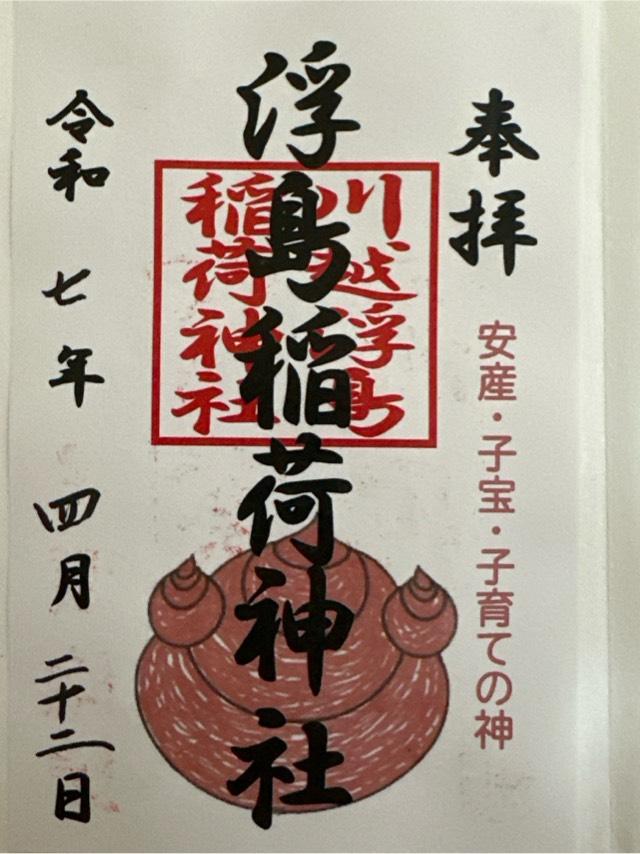 奉拝
安産・子宝・子育ての神
浮島稲荷神社
川越浮島
稲荷神社
令和七年四月二十二日